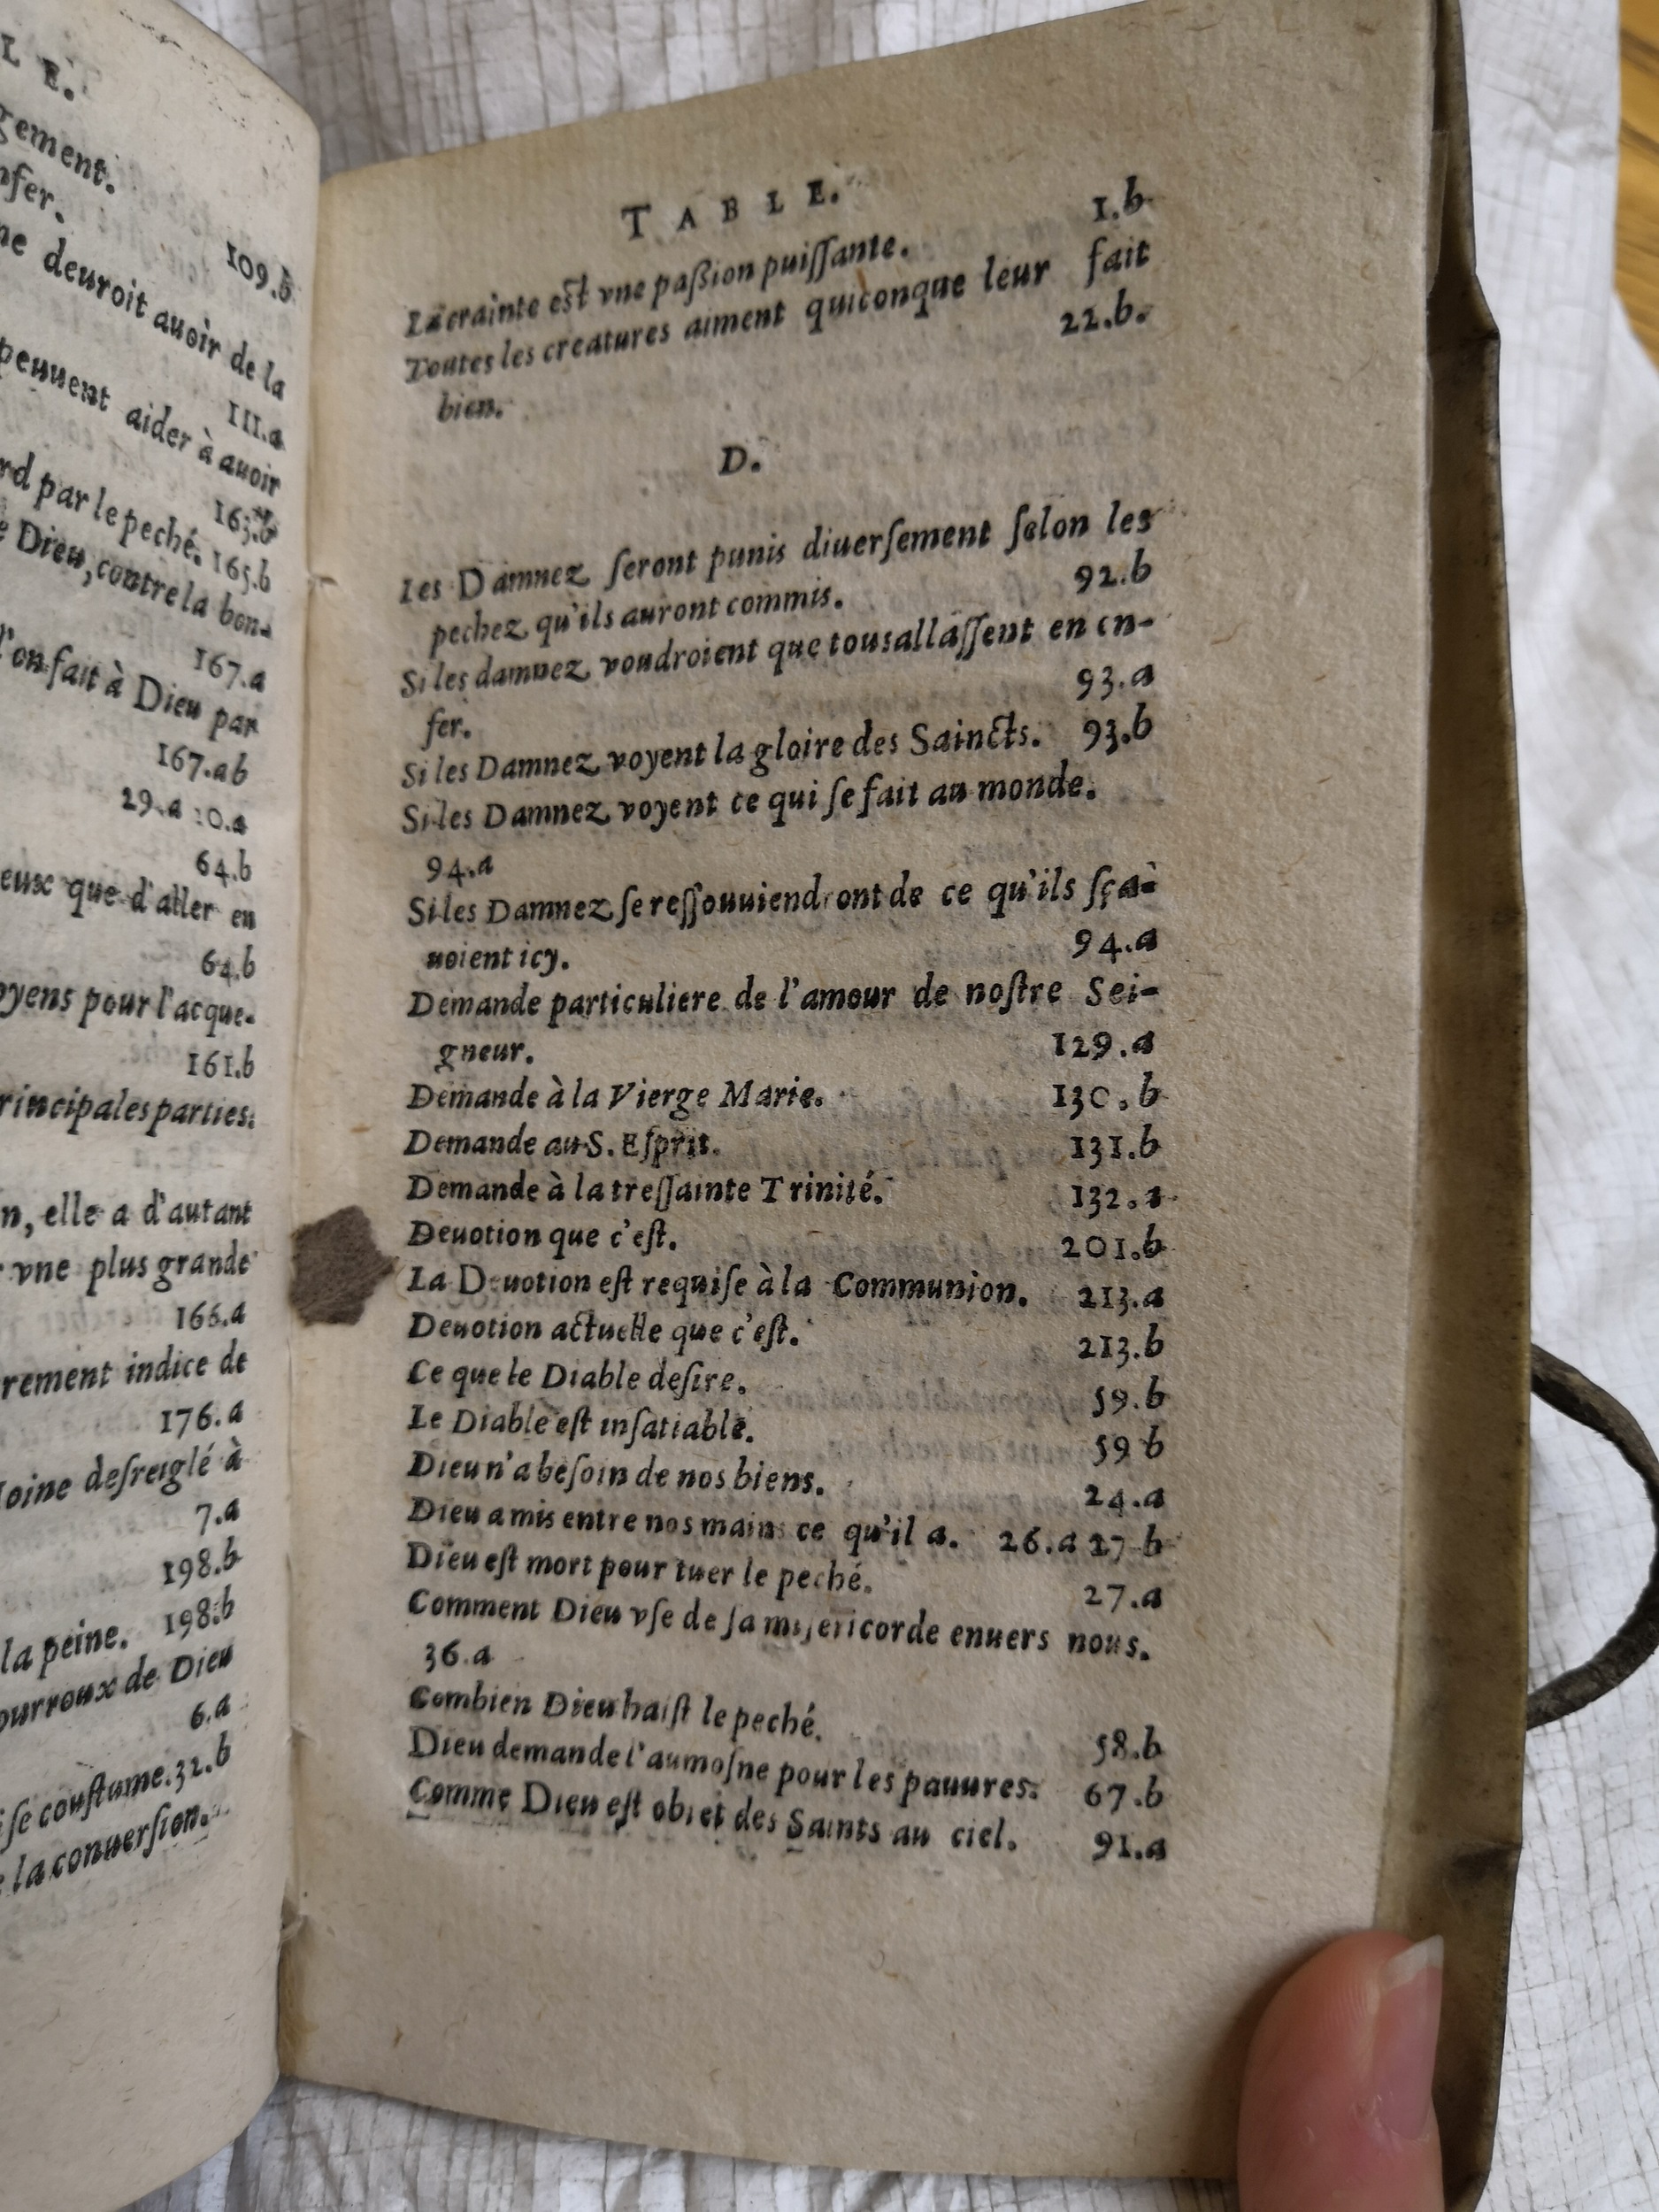 L E.
gement.
nfer.
109.b
ne deuroit auoir de la
111.a
peuuent aider à auoir
163.b
rd par le peché. 165.b
e Dieu, contre la bon-
167.a
l'on fait à Dieu par
167.ab
29.a 0.a
64.b
eux que d'aller en
64.b
oyens pour l'acque-
161.b
rincipales parties.
n, elle a d'autant
r vne plus grande
166.a
rement indice de
176.a
oine desreiglé à
7.a
198.b
la peine. 198.b
ourroux de Dieu
6.a
i se coustume. 32.b
e la conuersion.
TABLE.
La crainte est vne paßion puiſſante. 1.b
Toutes les creatures aiment quiconque leur fait
bien. 22.b.
D.
Les Damnez ſeront punis diuerſement ſelon les
pechez qu'ils auront commis. 92.b
Si les damnez voudroient que tous allaſſent en en-
fer. 93.a
Si les Damnez voyent la gloire des Saincts. 93.b
Si les Damnez voyent ce qui ſe fait au monde.
94.a
Si les Damnez ſe reſſouuiendront de ce qu'ils ſça-
uoient icy. 94.a
Demande particuliere de l'amour de noſtre Sei-
gneur. 129.a
Demande à la Vierge Marie. 130.b
Demande au S. Eſprit. 131.b
Demande à la treſſainte Trinité. 132.a
Deuotion que c'eſt. 201.b
La Deuotion eſt requiſe à la Communion. 213.a
Deuotion actuelle que c'eſt. 213.b
Ce que le Diable deſire. 59.b
Le Diable eſt inſatiable. 59 b
Dieu n'a beſoin de nos biens. 24.a
Dieu a mis entre nos mains ce qu'il a. 26.a 27 b
Dieu eſt mort pour tuer le peché. 27.a
Comment Dieu vſe de ſa miſericorde enuers nous.
36.a
Combien Dieu haiſt le peché. 58.b
Dieu demande l'aumoſne pour les pauures. 67.b
Comme Dieu eſt obiet des Saints au ciel. 91.a